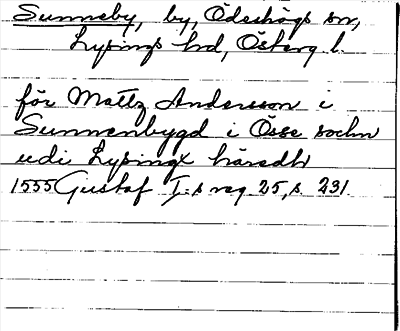 Sunneby, by, Ödeshögs sn,
Lysings hd, Österg l.
för Mattz Andersson i
Sunnenbygd i Össe sochn
udi Lysingx häredh
1555 Gustaf I:s reg 25, s. 231.